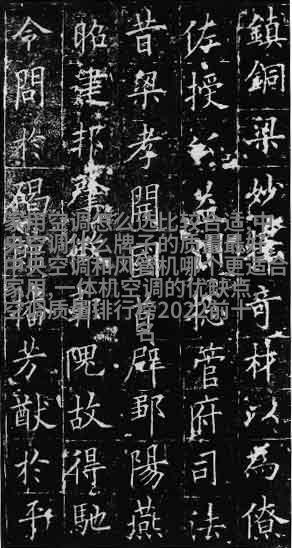 鎮銅梁妙擇奇材以為僚
佐授公益州總管府司法
昔梁孝開國首辟鄒陽燕
昭建邦肇徵郭隗故得馳
令問於碣館播芳猷於平
家用空调怎么选比较合适,中
央空调什么牌子的质量最好,
中央空调和风管机哪个更适合
家用,一体机空调的优缺点,
空调质量排行榜2022前十
名